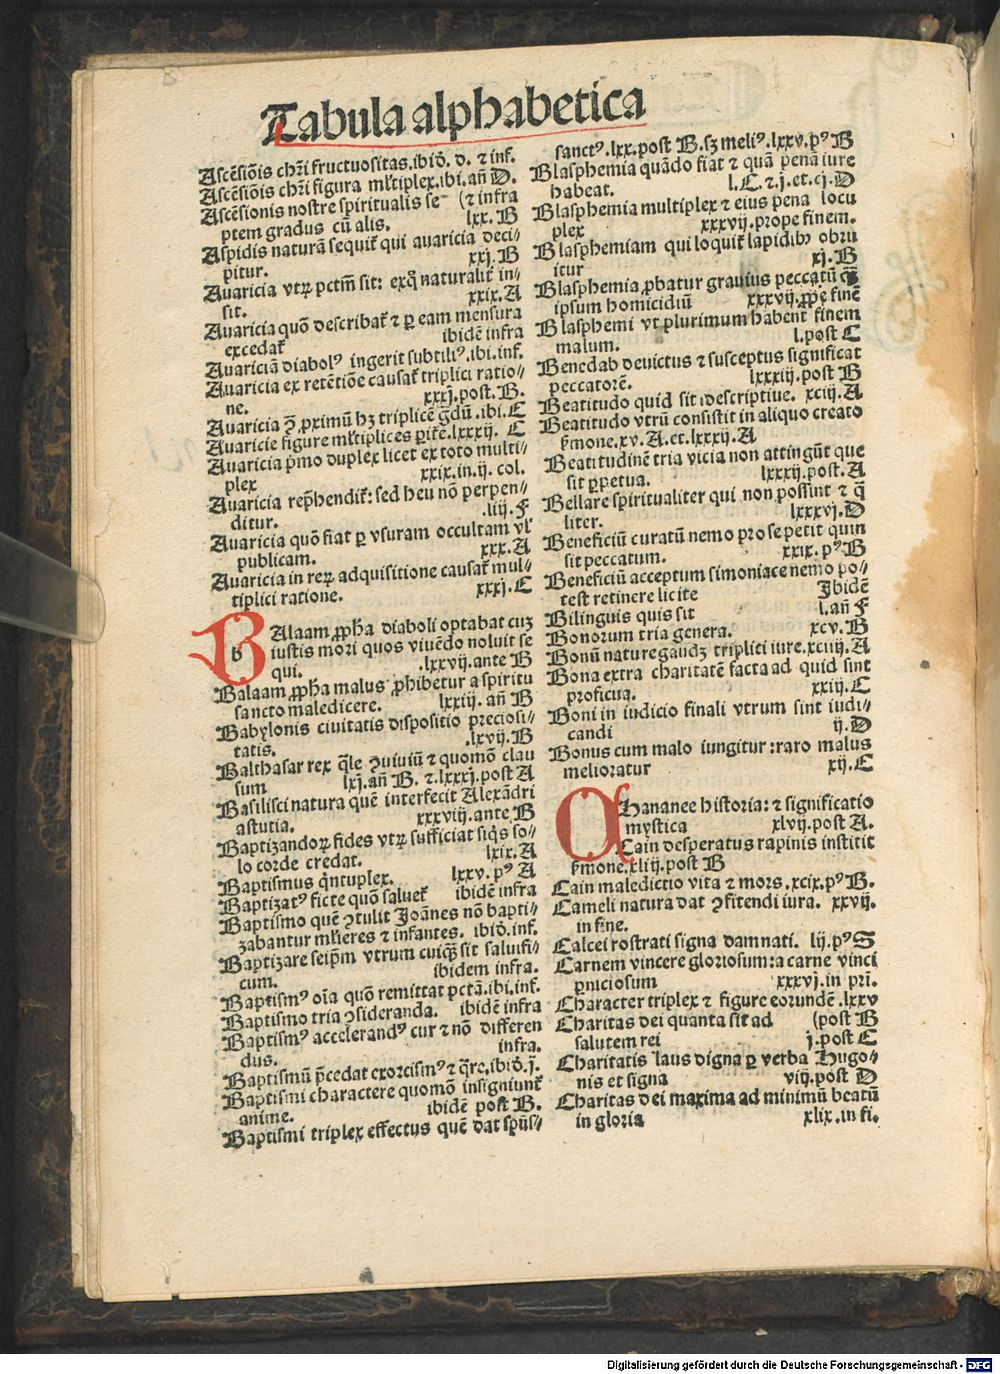 Tabula alphabetica
Ascẽsiõis chři fructuositas.ibiđ. d. ⁊ inf.
Ascẽsiõis chři figura mľtiplex.ibi.añ D.
Ascẽsionis nostre spiritualis se⸗ (⁊ infra
ptem gradus cũ alis. lxx. B
Aspidis naturã sequiť qui auaricia deci⸗
pitur. xxj. B
Auaricia vtꝝ pctm̃ sit: exq̃ naturaliť in⸗
sit. xxix. A
Auaricia quõ describať ⁊ ꝑ eam mensura
excedať ibidẽ infra
Auariciã diabolꝰ ingerit subtiliꝰ.ibi.inf.
Auaricia ex retẽtiõe causať triplici ratio⸗
ne. xxxj.post. B.
Auaricia ꝯ̃ ꝓximũ hꝫ triplicẽ g̃dũ .ibi. E
Auaricie figure mľtiplices ꝑiťe.lxxxij. C
Auaricia p̃mo duplex licet ex toto multi⸗
plex xxix.in.ij. col.
Auaricia rep̃hendiť: sed heu nõ perpen⸗
ditur. .liij. F
Auaricia quõ fiat ꝑ vsuram occultam vľ
publicam. xxx. A
Auaricia in reꝝ adquisitione causať mul⸗
tiplici ratione. xxxj. C
B b Alaam ꝓp̃ha diaboli optabat cuꝫ
iustis mori quos viuẽdo noluit se
qui. .lxxvij.ante B
Balaam ꝓp̃ha malus ꝓhibetur a spiritu
sancto maledicere. lxxiij. añ B
Babylonis ciuitatis dispositio preciosi⸗
tatis. .lxvij. B
Balthasar rex q̃le ꝯuiuiũ ⁊ quomõ clau
sum lxj.añ B. ⁊.lxxxj.post A
Basilisci natura quẽ interfecit Alexãdri
astutia. xxxviij.ante B
Baptizandoꝝ fides vtꝝ sufficiat siq̃s so⸗
lo corde credat. lxix. A
Baptismus q̃ntuplex. lxxv. pꝰ A
Baptizatꝰ ficte quõ salueť ibidẽ infra
Baptismo quẽ ꝯtulit Joãnes nõ bapti⸗
zabantur mľieres ⁊ infantes. ibiđ.inf.
Baptizare seip̃m vtrum cuiq̃ꝫ sit saluifi⸗
cum. ibidem infra.
Baptismꝰ oĩa quõ remittat pctã.ibi.inf.
Baptismo tria ꝯsideranda. ibidẽ infra
Baptismꝰ accelerandꝰ cur ⁊ nõ differen
dus. infra.
Baptismũ p̃cedat exorcismꝰ ⁊ q̃re.ibiđ.j.
Baptismi charactere quomõ insigniunť
anime. ibidẽ post B.
Baptismi triplex effectus quẽ dat sp̃ũs⸗
sanctꝰ.lxx.post B.sꝫ meliꝰ.lxxv.pꝰ B
Blasphemia quãdo fiat ⁊ quã penã iure
habeat. l.C.⁊.j.et.cj.D
Blasphemia multiplex ⁊ eius pena locu
plex xxxvij.prope finem.
Blasphemiam qui loquiť lapidibꝫ obru
itur xj. B
Blasphemia ꝓbatur grauius peccatũ q̃ꝫ
ipsum homicidiũ xxxvij.ꝓpe finẽ
Blasphemi vt plurimum habent finem
malum. l.post C
Benedab deuictus ⁊ susceptus significat
peccatorẽ. lxxxiij.post B
Beatitudo quid sit descriptiue. xciij. A
Beatitudo vtrũ consistit in aliquo creato
p̃mone.xv. A.et.lxxxij. A
Beatitudinẽ tria vicia non attingũt que
sit ꝑpetua. lxxxij.post. A
Bellare spiritualiter qui non possint ⁊ q̃
liter. lxxxvj. D
Beneficiũ curatũ nemo pro se petit quin
sit peccatum. xxix. pꝰ B
Beneficiũ acceptum simoniace nemo po⸗
test retinere licite Ibidẽ
Bilinguis quis sit l.añ F
Bonorum tria genera. xcv. B
Bonũ nature gaudꝫ triplici iure.xciiij. A
Bona extra charitatẽ facta ad quid sint
proficua. xxiij. C
Boni in iudicio finali vtrum sint iudi⸗
candi ij. D
Bonus cum malo iungitur :raro malus
melioratur xij. C
C Hananee historia: ⁊ significatio
mystica xlvij.post A.
Cain desperatus rapinis institit
p̃mone.xliij.post B
Cain maledictio vita ⁊ mors.xcix.pꝰ B.
Cameli natura dat ꝯfitendi iura. xxvij.
in fine.
Calcei rostrati signa damnati. lij.pꝰ S
Carnem vincere gloriosum:a carne vinci
ꝑniciosum xxxvj.in pri.
Character triplex ⁊ figure eorundẽ .lxxv
Charitas dei quanta sit ad (post B
salutem rei j.post C
Charitatis laus digna ꝑ verba Hugo⸗
nis et signa viij.post D
Charitas dei maxima ad minimũ beatũ
in gloria xlix.in fi.
Digitalisierung gefördert durch die Deutsche Forschungsgemeinschaft - DFG